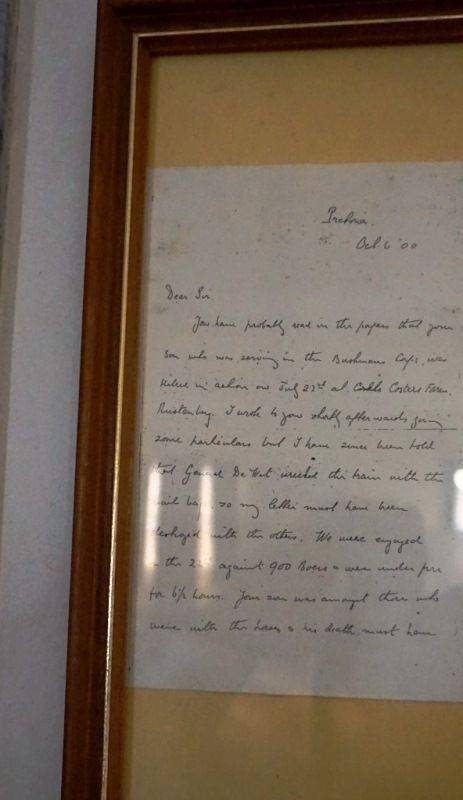 Pretoria.
Oct 6 '00
Dear Sir.
You have probably read in the papers that your
son who was serving in the Bushmans Corps, was
killed in action on July 22nd at Costers Farm,
Rustenburg. I wrote to you shortly afterwards giving
some particulars but I have since been told
that General De Wet wrecked the train with the
mail bags, so my letter must have been
destroyed with the others. We were engaged
on the 22nd against 900 Boers & were under fire
for 6½ hours. Your son was amongst those who
were with the horses & his death must have